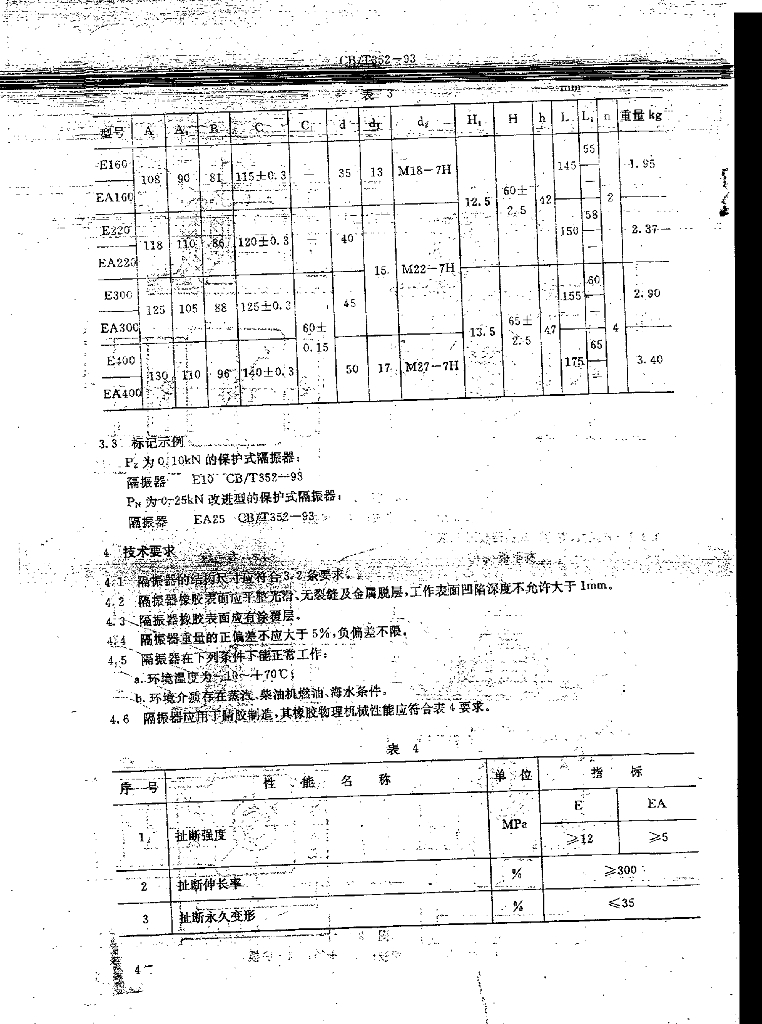 CB/T352—93
表 3
mm
型号 A A₁ B C C₁ d d₁ d₂ H₁ H h L L₁ n 重量 kg
E160 108 90 81 115±0.3 — 35 13 M18—7H 12.5 60±2.5 42 145 55 2 1.95
EA160 —
E220 118 110 86 120±0.3 — 40 15 M22—7H 150 58 2.37
EA220 —
E300 125 105 88 125±0.3 60±0.15 45 13.5 65±2.5 47 155 60 4 2.90
EA300 —
E400 130 110 96 140±0.3 50 17 M27—7H 175 65 3.40
EA400 —
3.3 标记示例
P_Z 为 0.10kN 的保护式隔振器:
隔振器 E10 CB/T352—93
P_N 为 0.25kN 改进型的保护式隔振器:
隔振器 EA25 CB/T352—93
4 技术要求
4.1 隔振器的结构尺寸应符合3.2条要求。
4.2 隔振器橡胶表面应平整光滑、无裂缝及金属脱层,工作表面凹陷深度不允许大于 1mm。
4.3 隔振器橡胶表面应有涂覆层。
4.4 隔振器重量的正偏差不应大于 5%,负偏差不限。
4.5 隔振器在下列条件下能正常工作:
a. 环境温度为 —10—+70℃;
b. 环境介质存在蒸汽、柴油机燃油、海水条件。
4.6 隔振器应用丁腈胶制造,其橡胶物理机械性能应符合表 4 要求。
表 4
序 号 性 能 名 称 单 位 指 标
E EA
1 扯断强度 MPa ≥12 ≥5
2 扯断伸长率 % ≥300
3 扯断永久变形 % ≤35
4